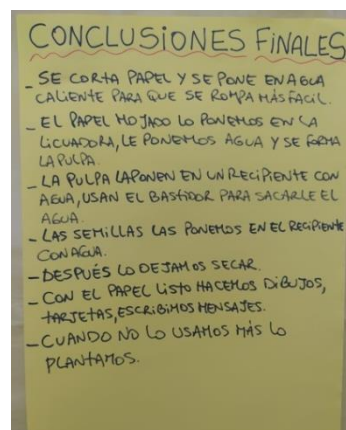 CONCLUSIONES FINALES
- SE CORTA PAPEL Y SE PONE EN AGUA
CALIENTE PARA QUE SE ROMPA MÁS FACIL.
- EL PAPEL MOJADO LO PONEMOS EN LA
LICUADORA, LE PONEMOS AGUA Y SE FORMA
LA PULPA.
- LA PULPA LA PONEN EN UN RECIPIENTE CON
AGUA, USAN EL BASTIDOR PARA SACARLE EL
AGUA.
- LAS SEMILLAS LAS PONEMOS EN EL RECIPIENTE
CON AGUA.
- DESPUÉS LO DEJAMOS SECAR.
- CON EL PAPEL LISTO HACEMOS DIBUJOS,
TARJETAS, ESCRIBIMOS MENSAJES.
- CUANDO NO LO USAMOS MÁS LO
PLANTAMOS.